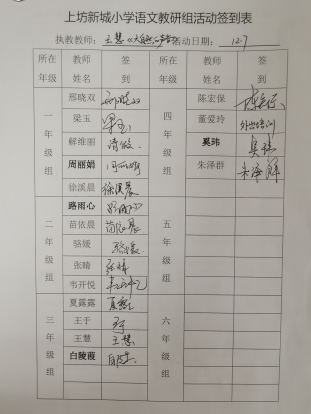 上坊新城小学语文教研组活动签到表
执教教师：王慧《大自然的声音》活动日期：12.7
所在年级 教师姓名 签到 所在年级 教师姓名 签到
一年级组 邢晓双 邢晓双 四年级组 陈宏保 陈宏保
梁玉 梁玉 董爱玲 外出培训
解维丽 请假 奚玮 奚玮
周丽娟 周丽娟 朱泽群 朱泽群
徐溪晨 徐溪晨
二年级组 路雨心 路雨心 五年级组
苗依晨 苗依晨
骆媛 骆媛
张晴 张晴
韦开悦 韦开悦
三年级组 夏露露 夏露露 六年级组
王于 王于
王慧 王慧
白陵葭